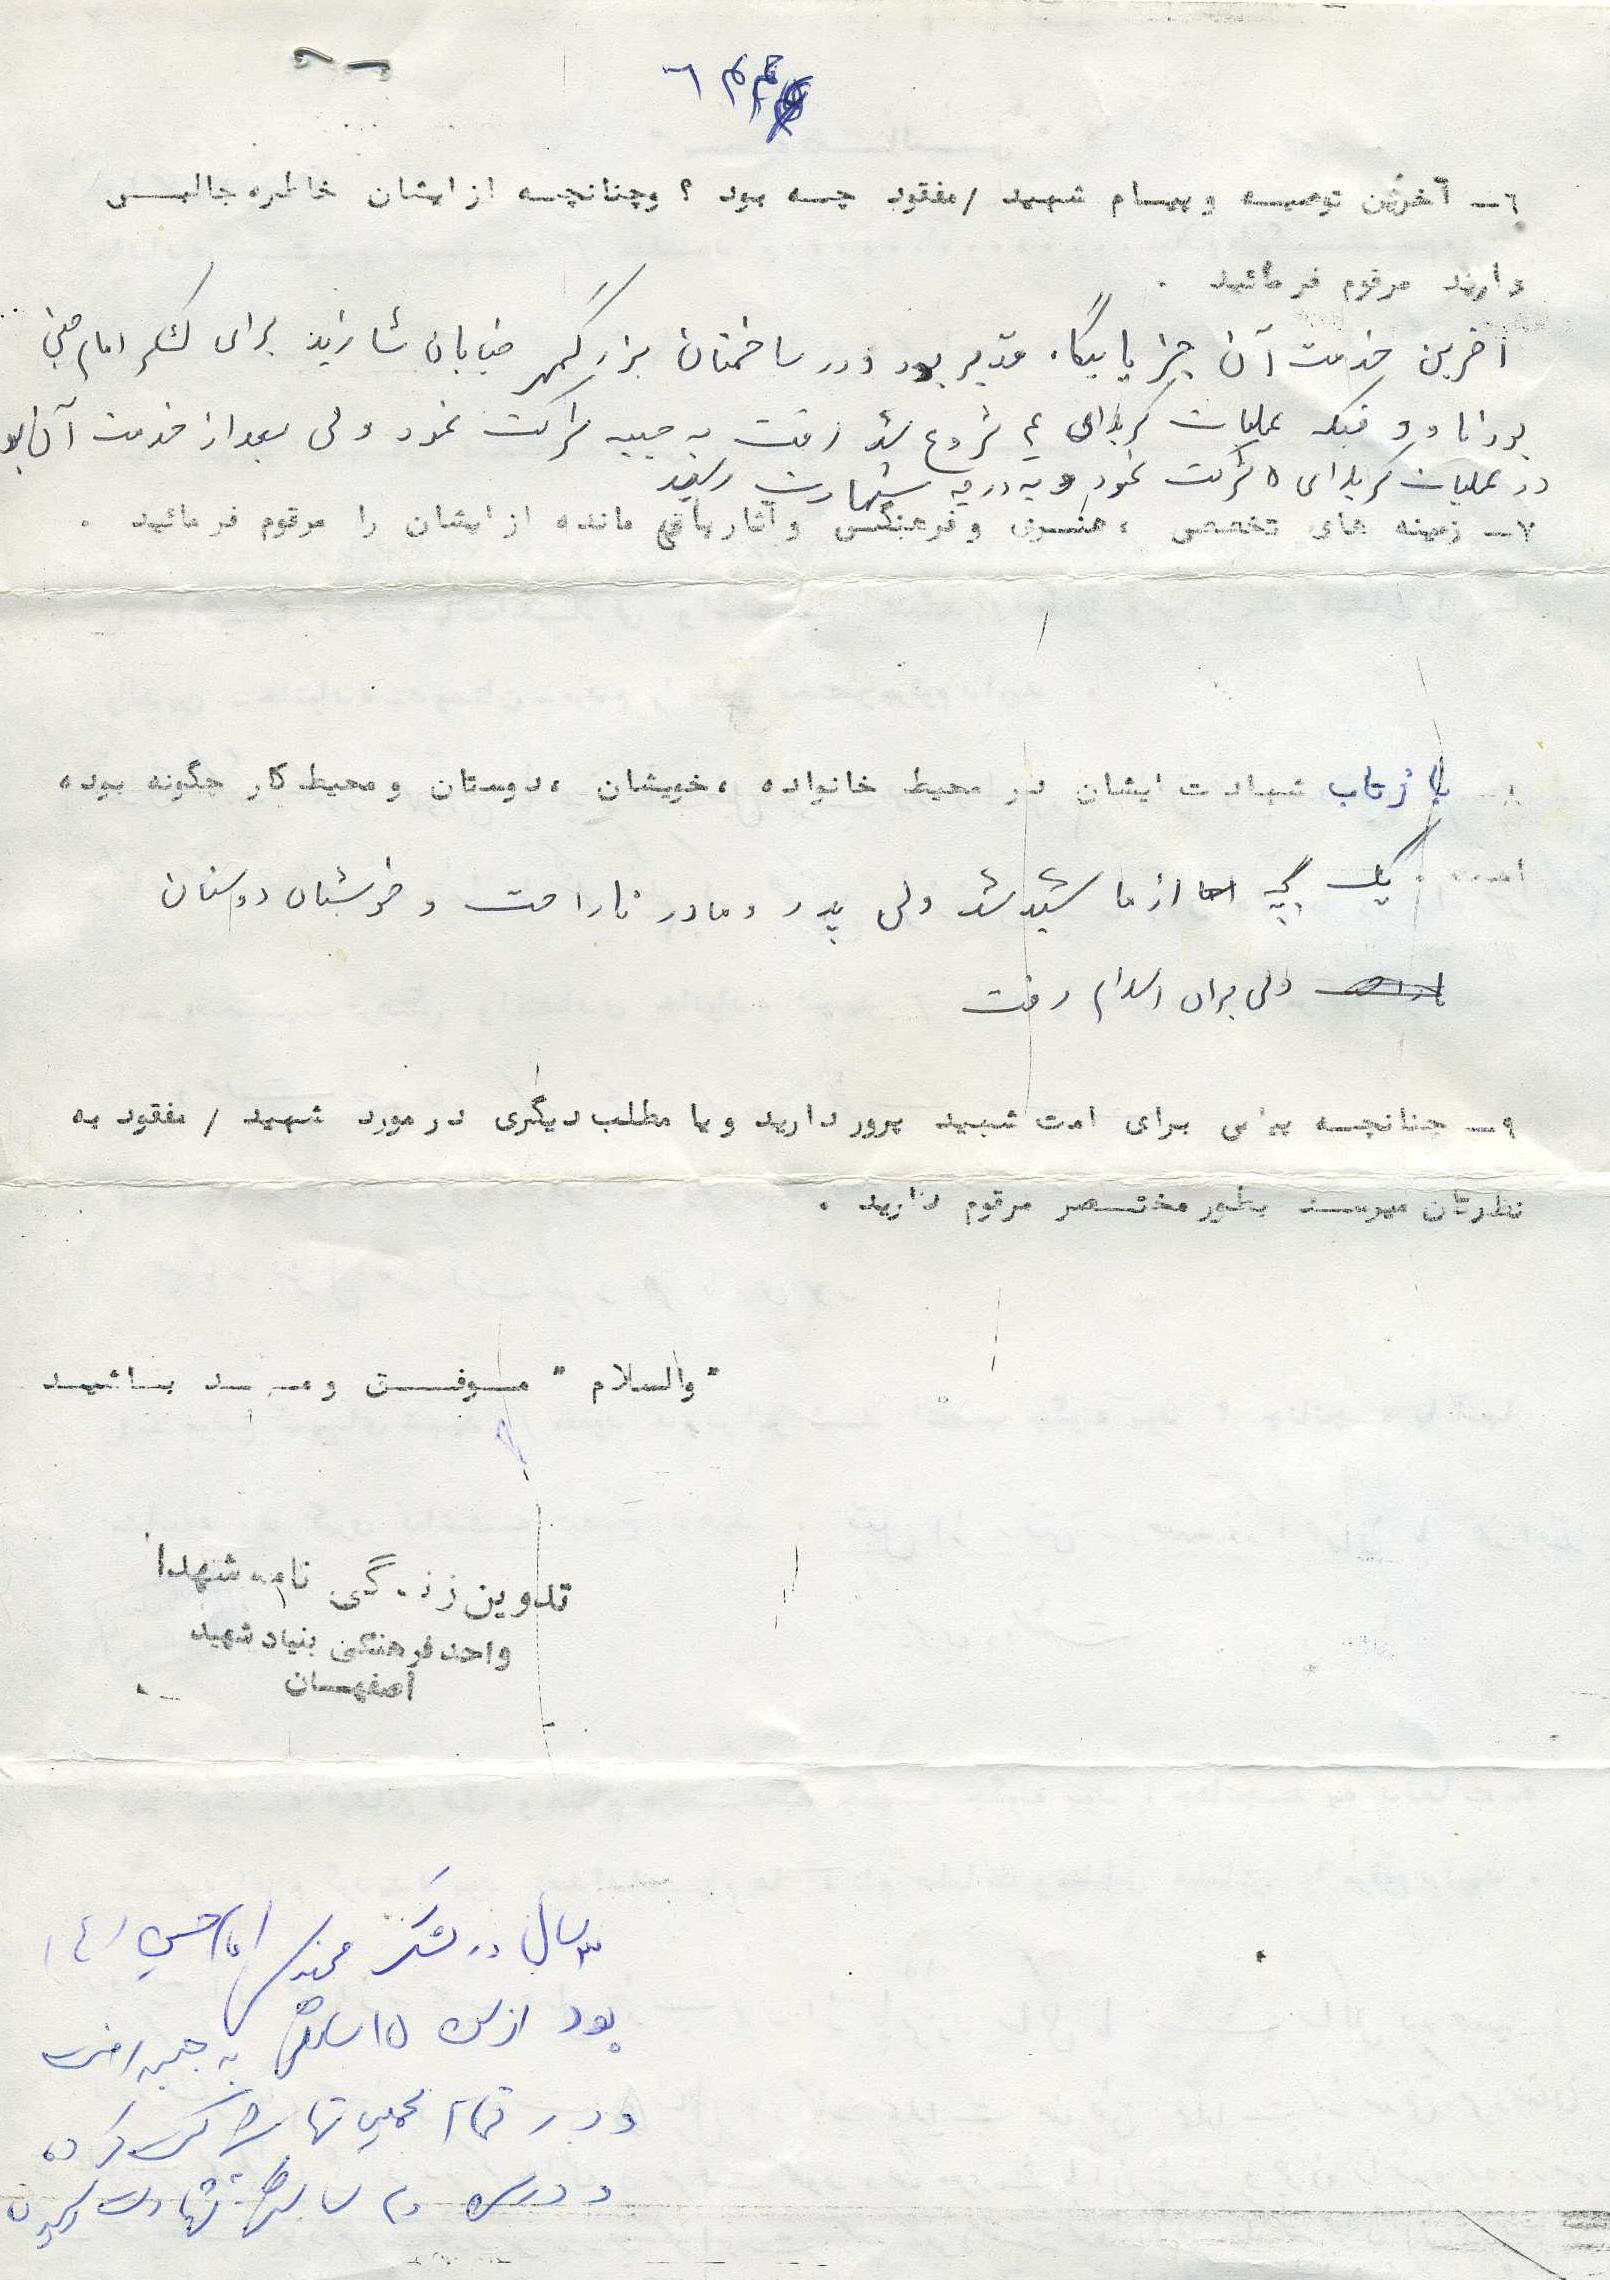 ٦ـ آخرین توصیـه و پیـام شهید / مفقود چـه بود ؟ وچنانچـه از ایشان خاطره جالبـی
دارید مرقوم فرمائید .
آخرین خدمت آن جزء پایگاه قدیر بود و در ساختمان بزرگمهر خیابان شازید برای لشکر امام حسین
بود تا و وقتیکه عملیات کربلای ۴ شروع شد رفت به جبهه شرکت نمود ولی بعد از خدمت آن
در عملیات کربلای ۵ شرکت نمود و به درجه شهادت رسید
۷ـ زمینه های تخصصی ، هنـری و فرهنگـی و آثار باقی مانده از ایشان را مرقوم فرمائید .
۸ـ بازتاب شهادت ایشان در محیط خانواده ، خویشان ، دوستان و محیط کار چگونه بوده
است .
یک بچه از ما شهید شد ولی پدر و مادر ناراحت و خویشان دوستان
ولی برای اسلام رفت
۹ـ چنانچـه پیامی برای امت شهید پرور دارید و یا مطلب دیگری در مورد شهید / مفقود به
نظرتان میرسـد بطور مختـصر مرقوم دارید .
"والسلام" مـوفـق و مـ ـد بـاشیـد
تدوین زندگی نامه شهدا
واحد فرهنگی بنیاد شهید
اصفهـان
۳ سال در لشکر امام حسین (ع)
بود از سن ۱۵ سالگی به جبهه رفت
و در تمام عملیتها شرکت کرده
و در سن سالگی به شهادت رسیدن